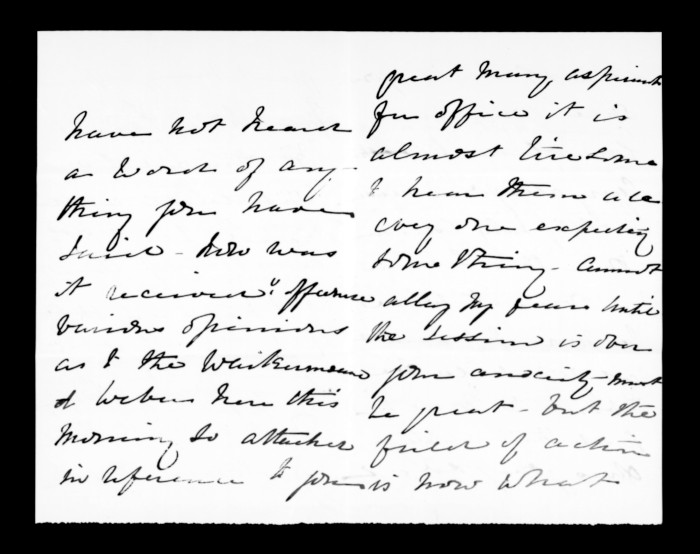 have not heard
a word of any-
thing you have
said - how was
it received?
various opinions
as to the
here this
morning so attacked
in reference to you
great many aspirants
for office it is
almost tiresome
to hear them all
every one expecting
something - Cannot
allay my fears until
the session is over
your anxiety must
be great - but the
field of action
is now what